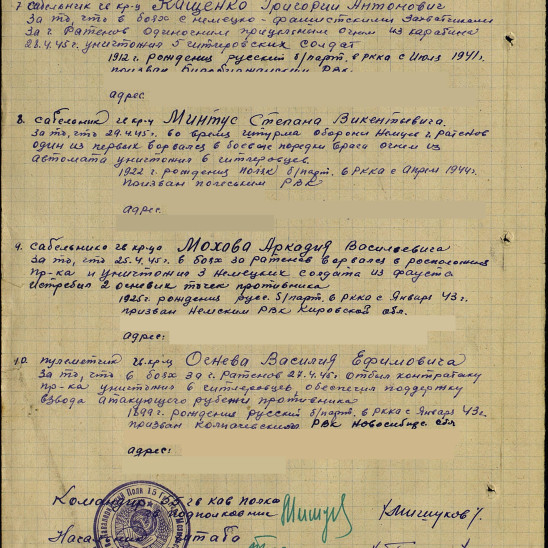 7. сабельник гв кр-ц Кащенко Григорий Антонович
За то, что в боях с немецко-фашистскими захватчиками
за г Ратенов одиночным прицельным огнем из карабина
28.4.45г. уничтожил 5 гитлеровских солдат
1912 г. рождения русский б/парт. в РККА с Июля 1941г.
призван РВК.
адрес
8. сабельник гв кр-ц Минтус Степана Викентьевича.
За то, что 29.4.45г. во время штурма обороны немцев г. Ратенов
один из первых ворвался в боевые порядки врага огнем из
автомата уничтожил 6 гитлеровцев.
1922 г. рождения поляк б/парт. в РККА с апреля 1944г.
Призван РВК
адрес
9. сабельника гв кр-ца Мохова Аркадия Васильевича
за то, что 25.4.45г. в боях за Ратенов ворвался в расположение
пр-ка и уничтожил 3 немецких солдата из фауста
истребил 2 огневых точек противника
1925г. рождения русс. б/парт. в РККА с Января 43г.
призван Немским РВК Кировской обл.
адрес:
10. пулеметчик гв.кр-ц Огнева Василия Ефимовича
За то, что в боях за г. Ратенов 27.4.45г отбил контратаку
пр-ка уничтожил 6 гитлеровцев, обеспечил поддержку
взвода атакующего рубежи противника
1899г. рождения русский б/парт. в РККА с Января 43г.
призван РВК Новосибирс. обл
адрес:
Командир гв кав полка
гв подполковник Мишуков
Начальник штаба